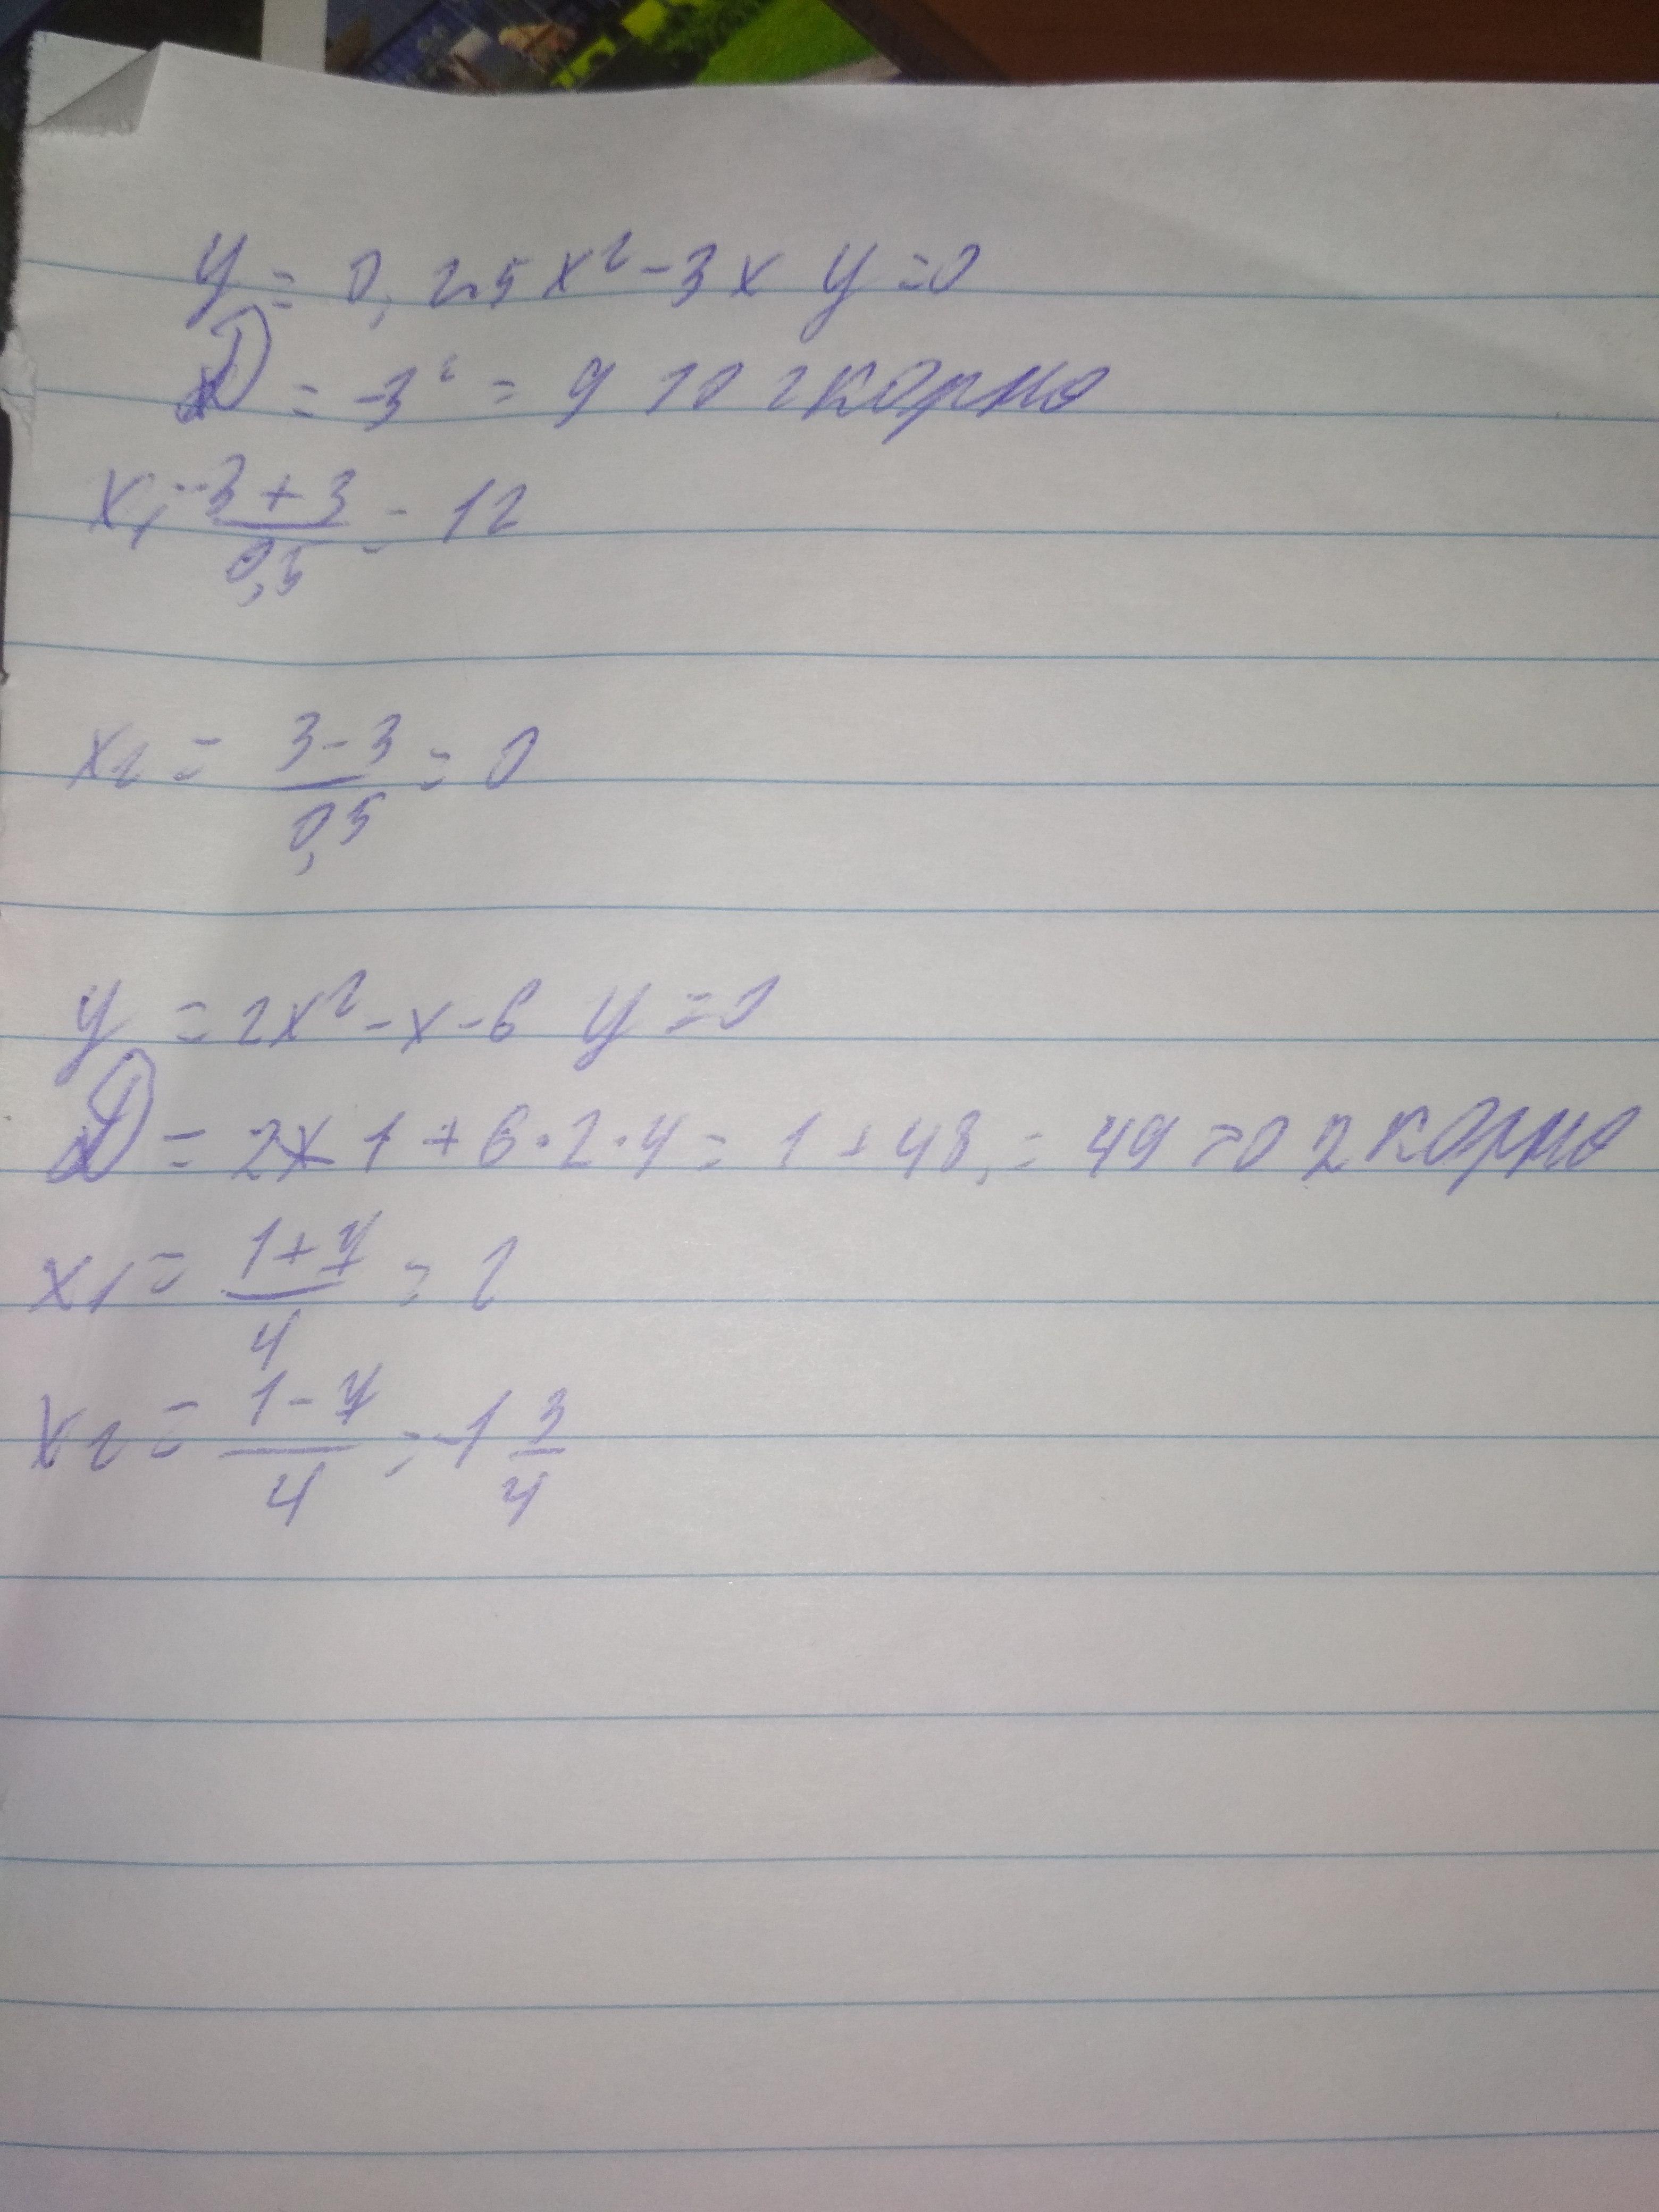 y = 0,25x² - 3x y = 0
D = -3² = 9 >0 2 корня
x₁ = 3 + 3 / 0,5 = 12
x₂ = 3 - 3 / 0,5 = 0
y = 2x² - x - 6 y = 0
D = 1 + 6 · 2 · 4 = 1 + 48 = 49 >0 2 корня
x₁ = 1 + 7 / 4 = 2
x₂ = 1 - 7 / 4 = -1 3/4